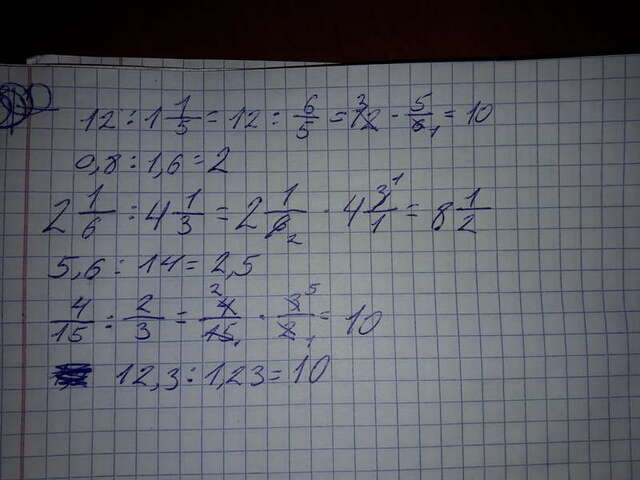 12 : 1 1/5 = 12 : 6/5 = 12 · 5/6 = 10
0,8 : 1,6 = 2
2 1/6 : 4 1/3 = 2 1/6 · 4 3/1 = 8 1/2
5,6 : 14 = 2,5
4/15 : 2/3 = 4/15 · 3/2 = 10
12,3 : 1,23 = 10